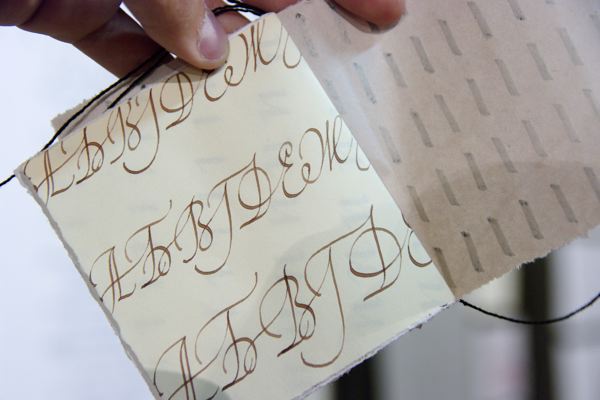 А Б В Г Д Е Ж
А Б В Г Д Е Ж
А Б В Г Д